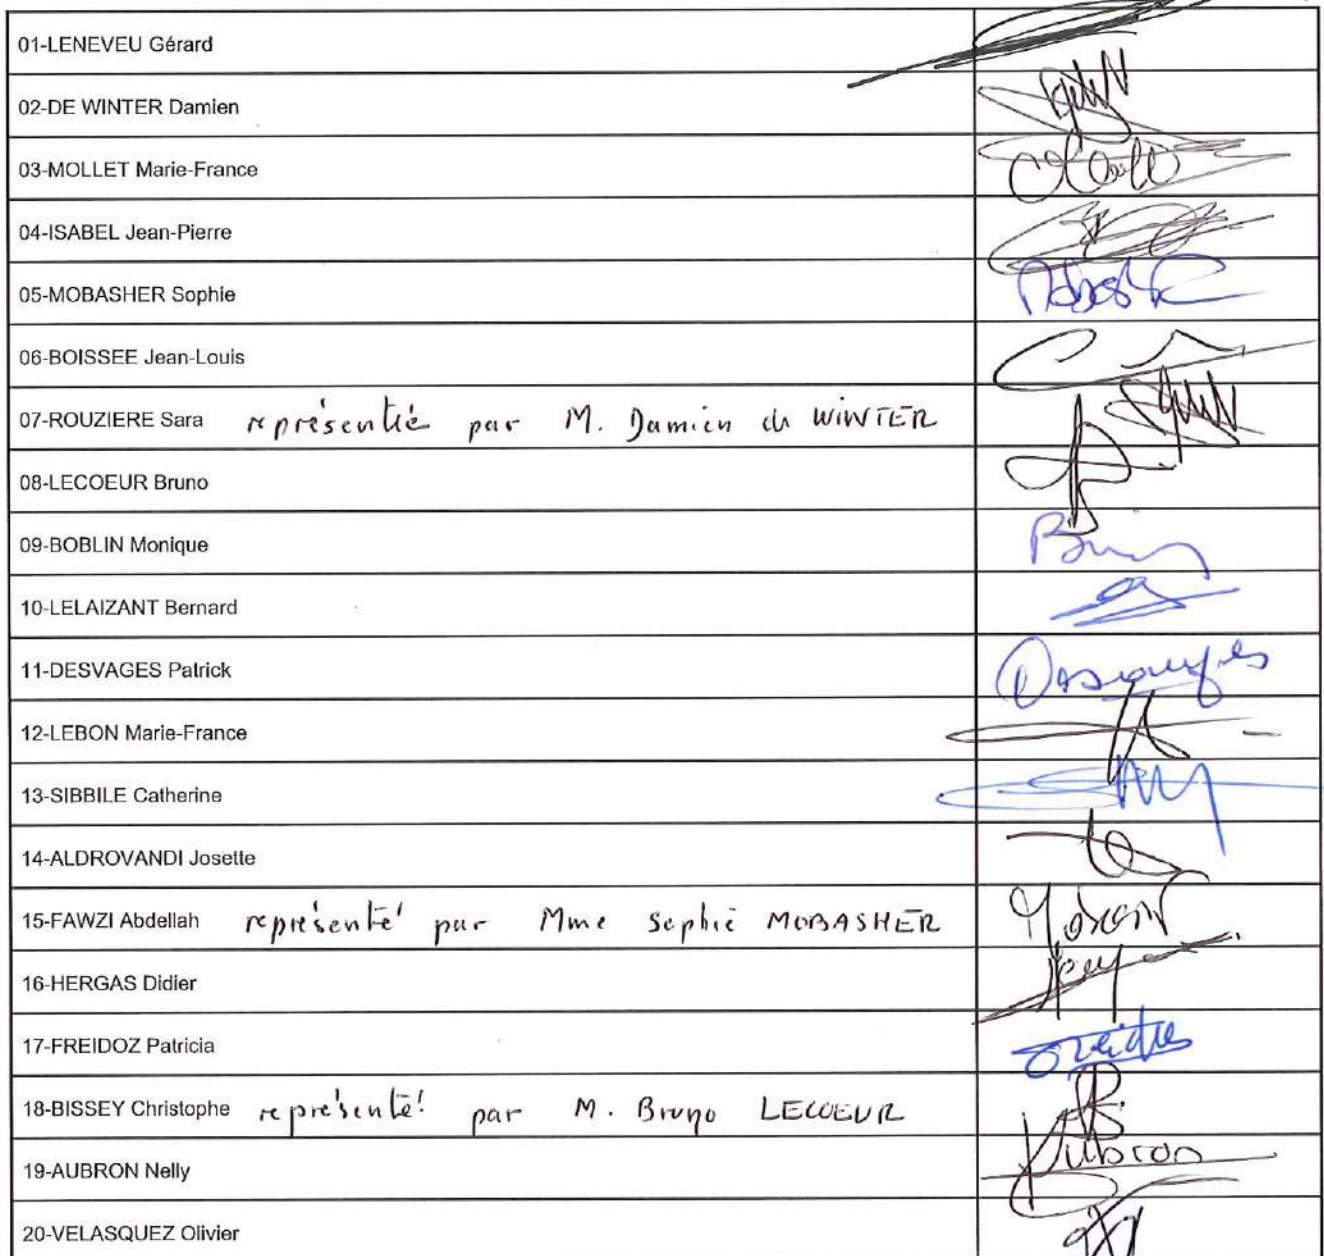 01-LENEVEU Gérard
02-DE WINTER Damien
03-MOLLET Marie-France
04-ISABEL Jean-Pierre
05-MOBASHER Sophie
06-BOISSEE Jean-Louis
07-ROUZIERE Sara représentée par M. Damien de WINTER
08-LECOEUR Bruno
09-BOBLIN Monique
10-LELAIZANT Bernard
11-DESVAGES Patrick
12-LEBON Marie-France
13-SIBBILE Catherine
14-ALDROVANDI Josette
15-FAWZI Abdellah représenté par Mme Sophie MOBASHER
16-HERGAS Didier
17-FREIDOZ Patricia
18-BISSEY Christophe représenté par M. Bruno LECOEUR
19-AUBRON Nelly Aubron
20-VELASQUEZ Olivier